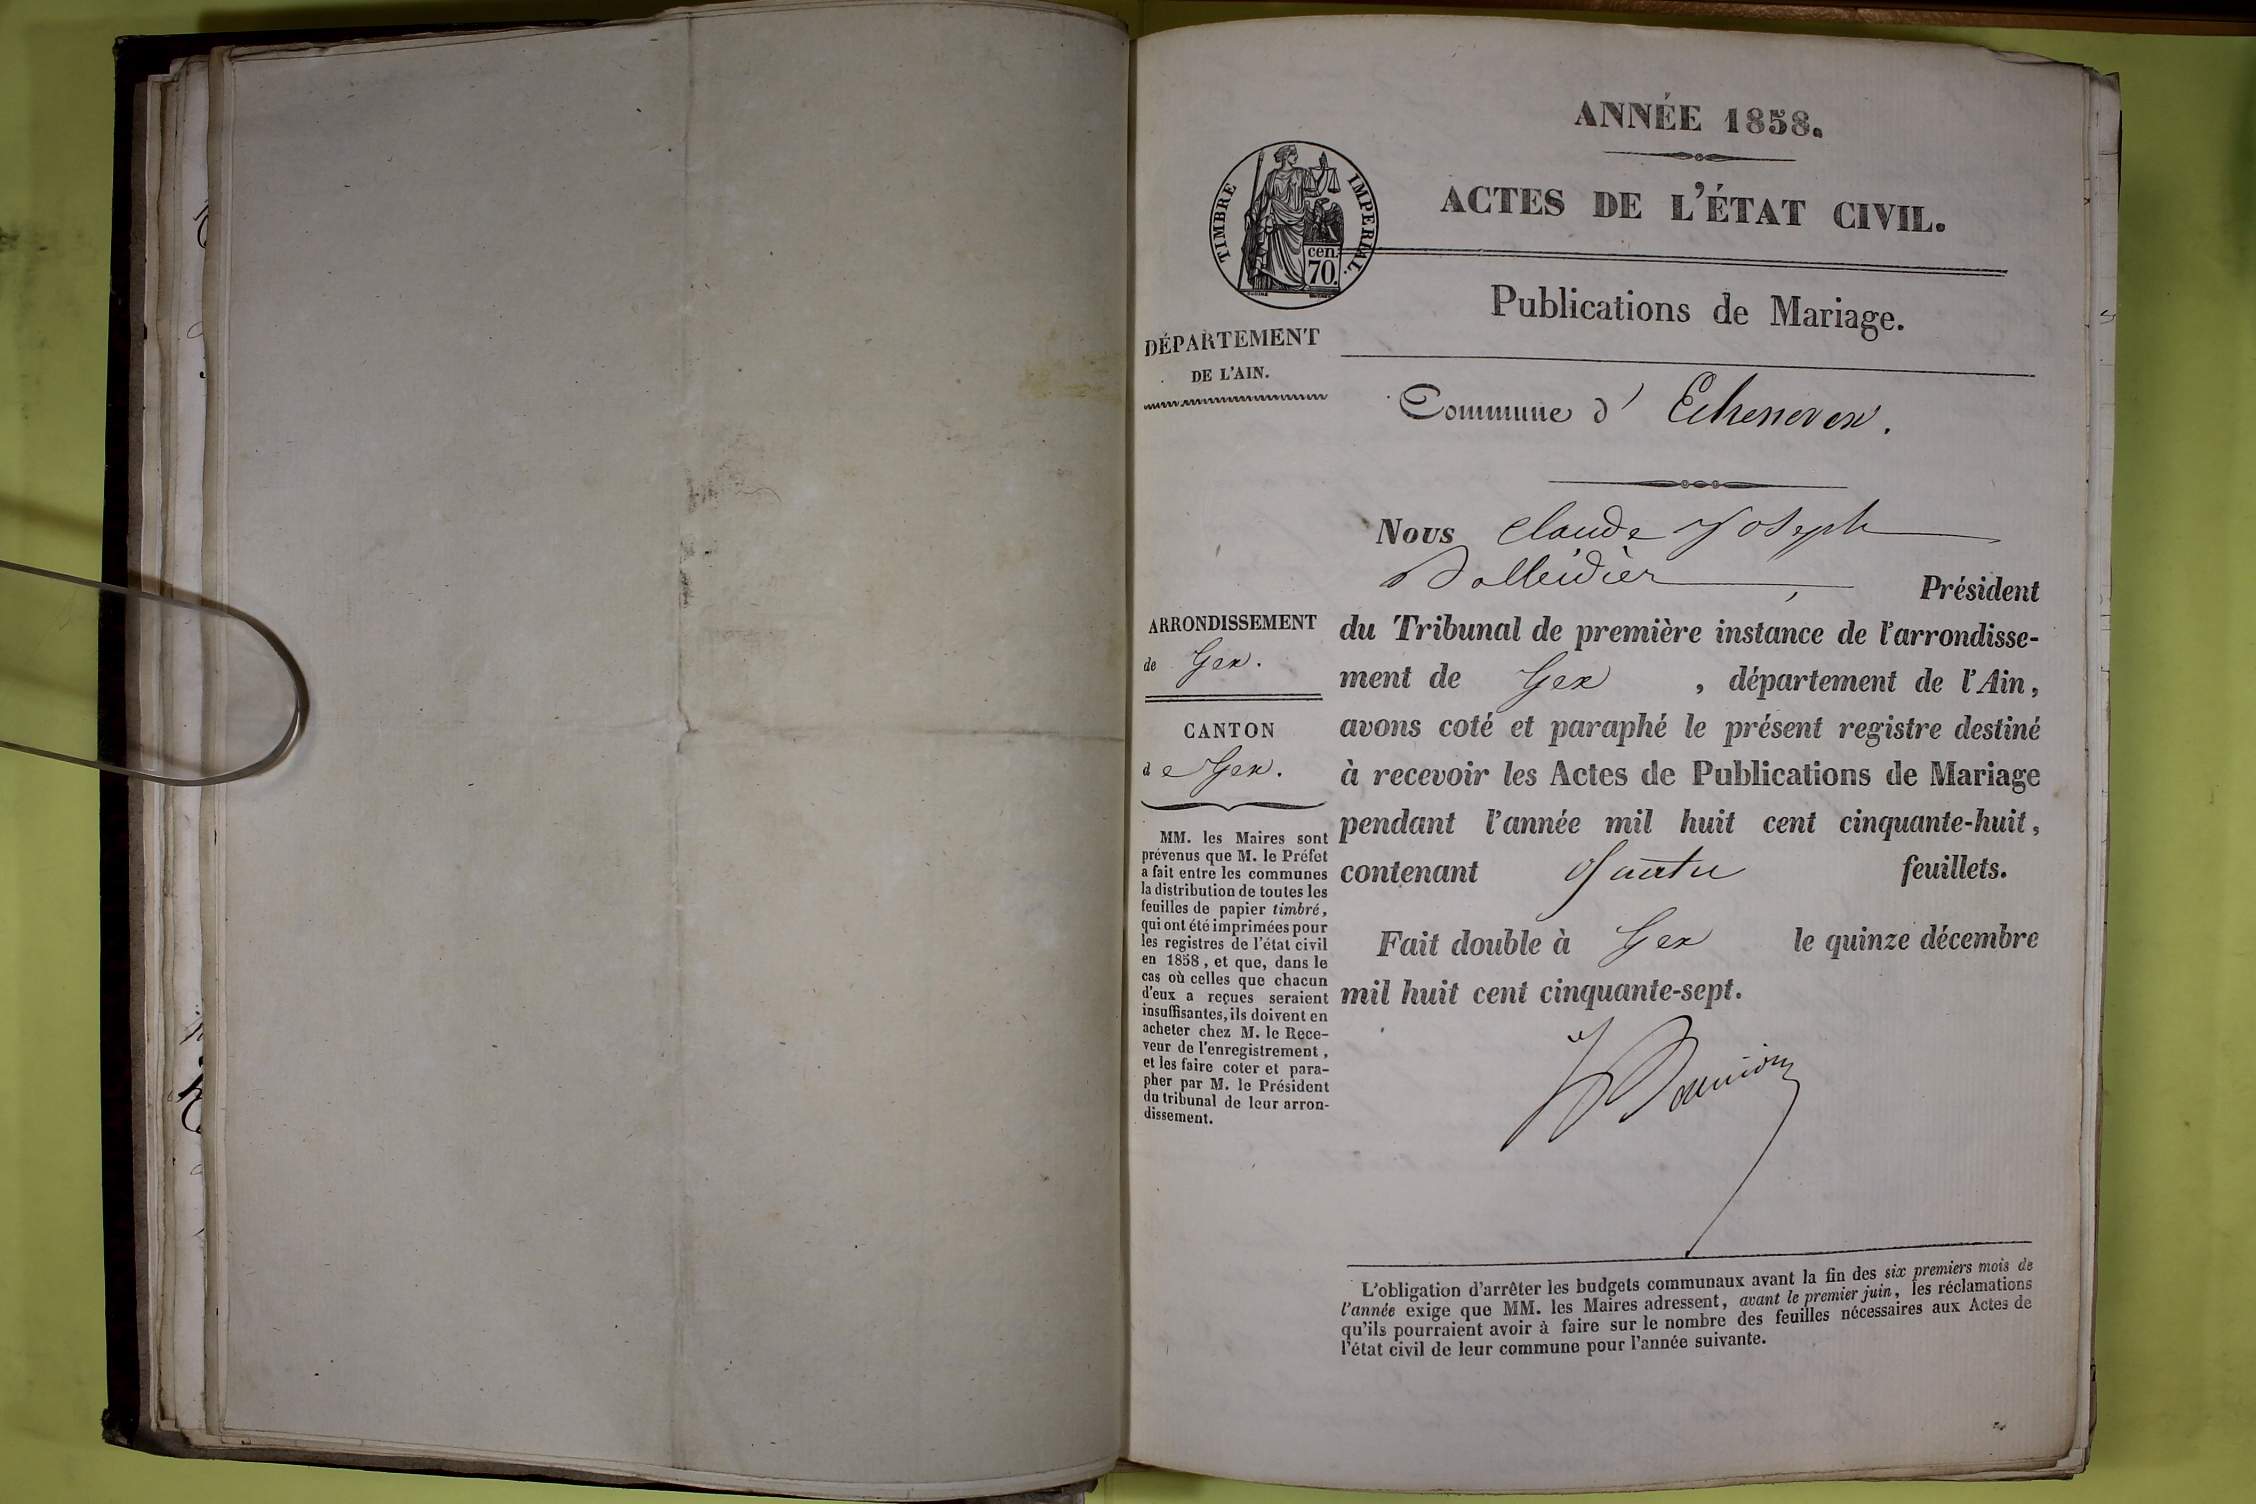 ANNÉE 1858.
ACTES DE L'ÉTAT CIVIL.
TIMBRE IMPERIAL.
cen.
70.
Publications de Mariage.
DÉPARTEMENT
DE L'AIN.
Commune d' Echenevex.
Nous Claude Joseph
Président
ARRONDISSEMENT
de Gex.
CANTON
de Gex.
MM. les Maires sont
prévenus que M. le Préfet
a fait entre les communes
la distribution de toutes les
feuilles de papier timbré,
qui ont été imprimées pour
les registres de l'état civil
en 1858, et que, dans le
cas où celles que chacun
d'eux a reçues seraient
insuffisantes, ils doivent en
acheter chez M. le Rece-
veur de l'enregistrement,
et les faire coter et para-
pher par M. le Président
du tribunal de leur arron-
dissement.
du Tribunal de première instance de l'arrondisse-
ment de Gex , département de l'Ain,
avons coté et paraphé le présent registre destiné
à recevoir les Actes de Publications de Mariage
pendant l'année mil huit cent cinquante-huit,
contenant quatre feuillets.
Fait double à Gex le quinze décembre
mil huit cent cinquante-sept.
L'obligation d'arrêter les budgets communaux avant la fin des six premiers mois de
l'année exige que MM. les Maires adressent, avant le premier juin, les réclamations
qu'ils pourraient avoir à faire sur le nombre des feuilles nécessaires aux Actes de
l'état civil de leur commune pour l'année suivante.